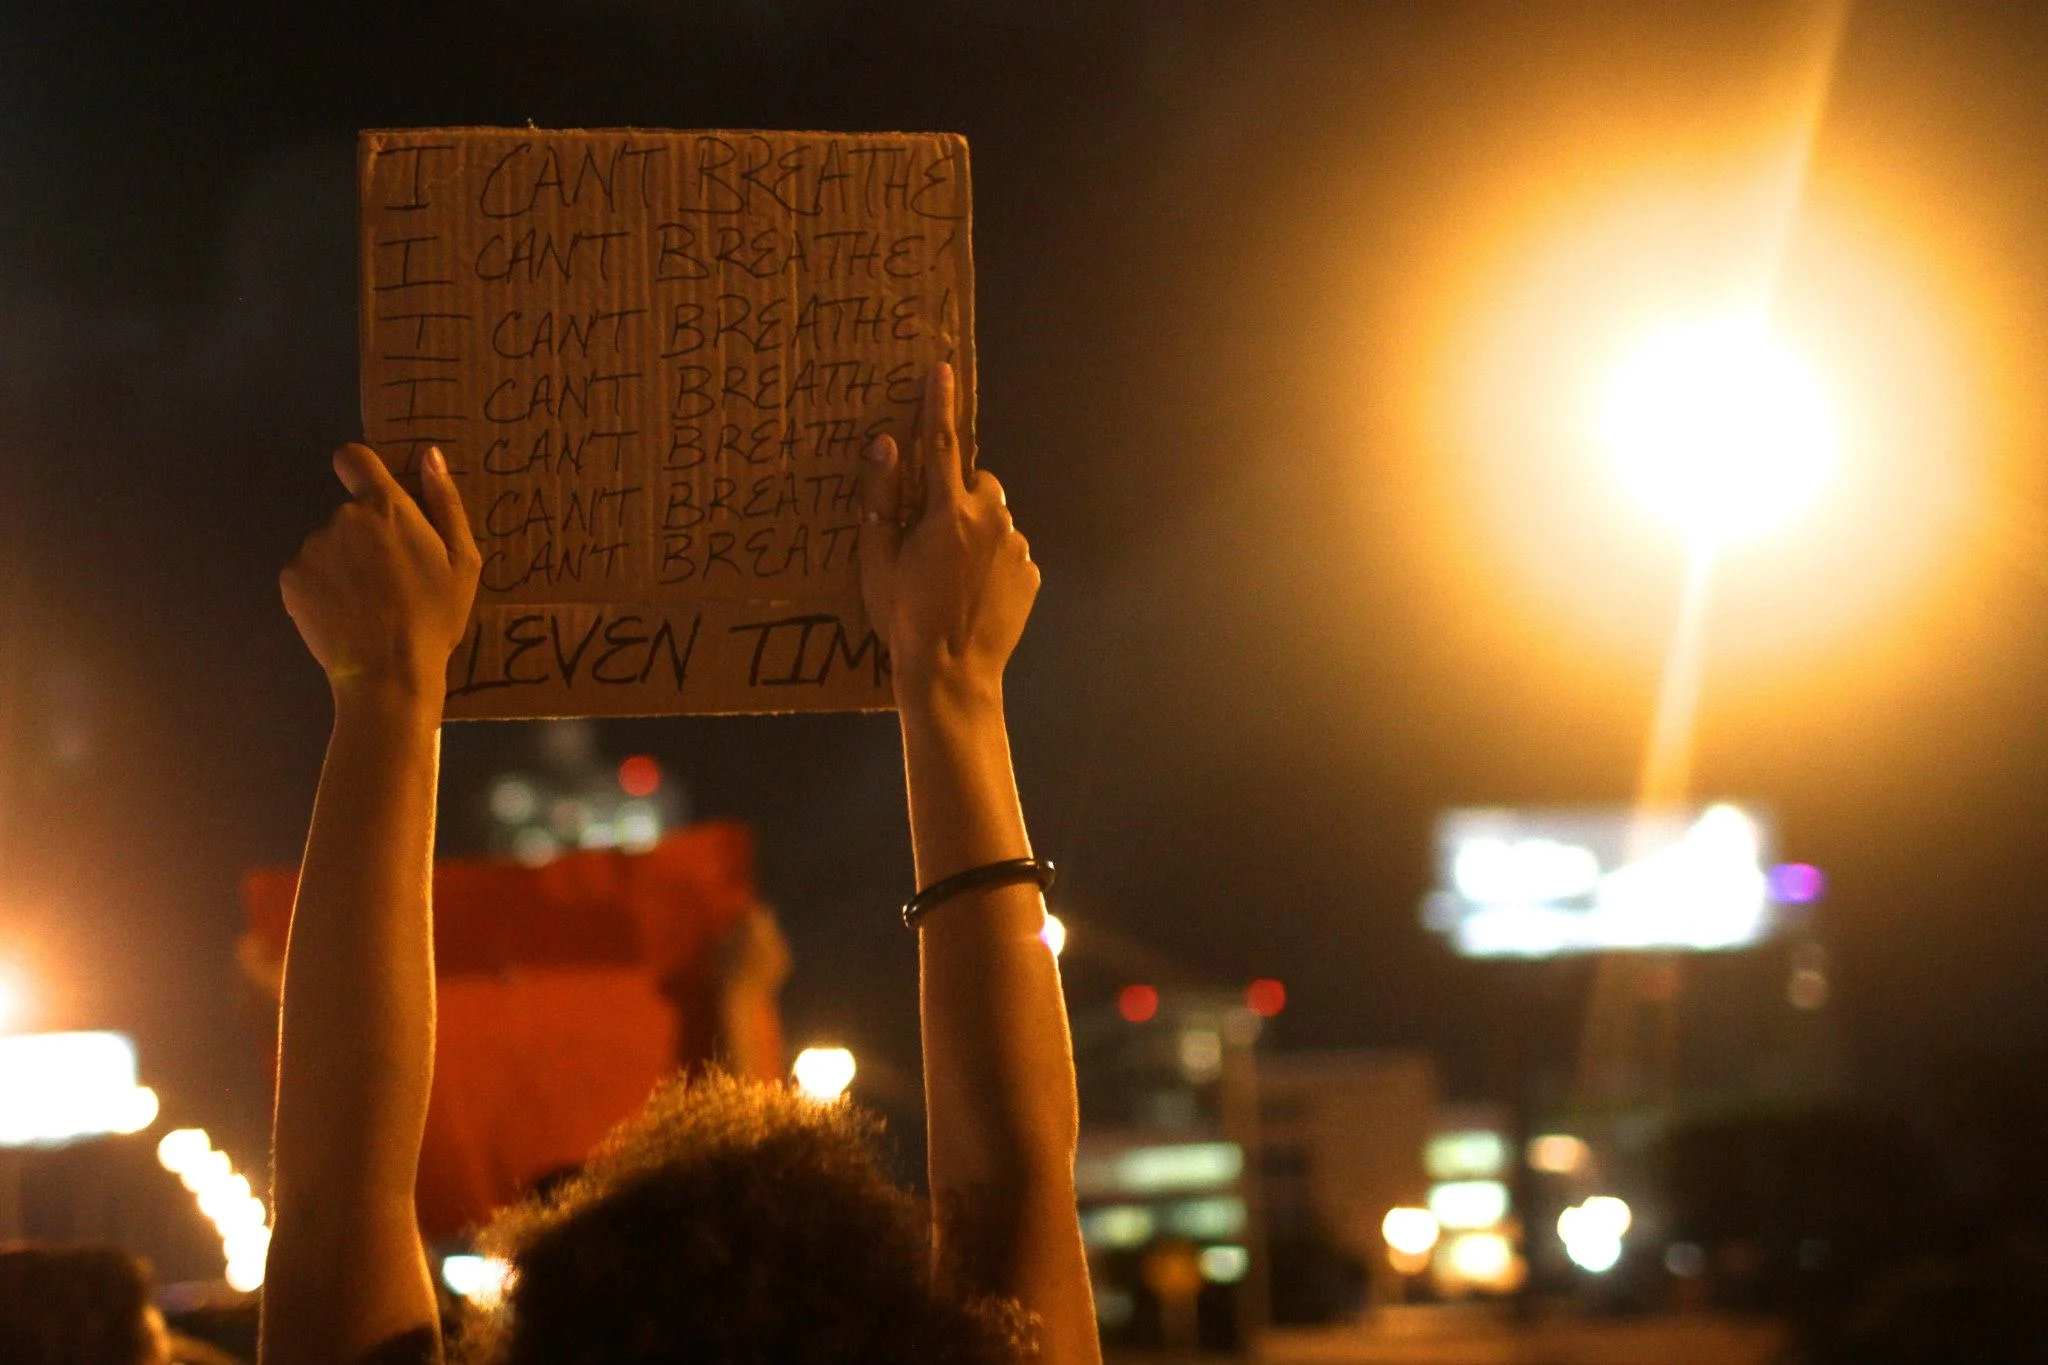 I CAN'T BREATHE
I CAN'T BREATHE!
I CAN'T BREATHE!
I CAN'T BREATHE
I CAN'T BREATHE!
CAN'T BREATH
CAN'T BREAT
LEVEN TIM